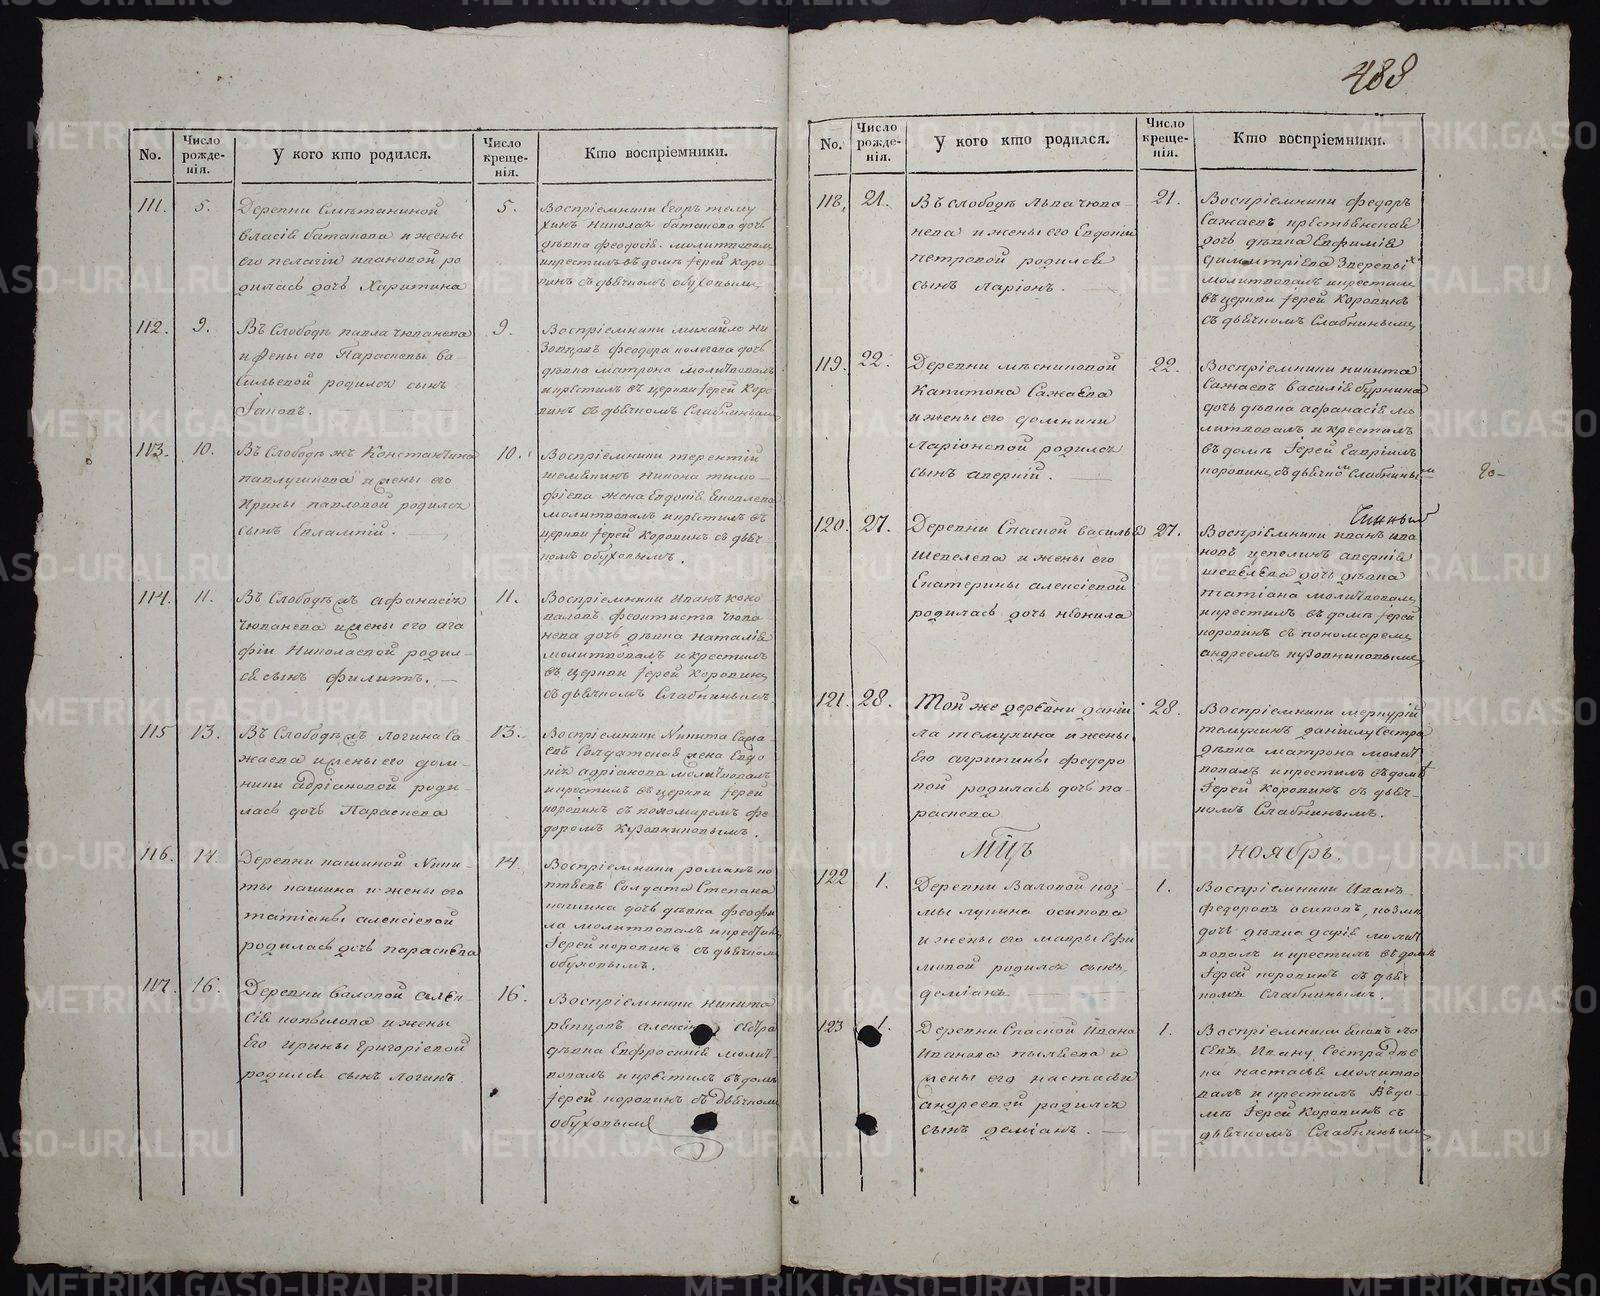 488
No.
Число рожде-нія.
У кого кто родился.
Число креще-нія.
Кто воспріемники.
111.
5.
Деревни Сметаниной
власія батанова и жены
его пелагіи ивановой ро
дилась дочь Харитина
5.
Воспріемники Егоръ тему
хинъ Николая батанова дочь
дѣвка феодосія. молитвовалъ
и крестилъ въ домѣ Іерей Коро-
винъ съ дьячкомъ обуховымъ
112.
9.
Въ Слободѣ павла чюванева
и жены его Парасковьи ва-
сильевой родился сынъ
Іаковъ.
9.
Воспріемники михайло
феодора дочь
дѣвка матрона молитвовалъ
и крестилъ въ церкви Іерей Коро
винъ съ дьячкомъ Слабнинымъ
113.
10.
Въ Слободѣ жъ Констанчина
павлушкова и жены его
Ирины павловой родился
сынъ Евлампій.
10.
Воспріемники терентій
Никона тимо-
фіева жена Евдокія Яковлева
молитвовалъ и крестилъ въ
церкви Іерей Коровинъ съ дьяч-
комъ обуховымъ.
114.
11.
Въ Слободѣ жъ афанасія
чюванева и жены его ага
фіи Николаевой родил-
ся сынъ филиппъ.
11.
Воспріемники Иванъ коно
валовъ феоктиста чюва-
нева дочь дѣвка наталія
молитвовалъ и крестилъ
въ церкви Іерей Коровинъ
съ дьячкомъ Слабнинымъ
115
13.
Въ Слободѣ жъ логина Са-
жаева и жены его дом-
ники адріановой роди-
лась дочь Параскева
13.
Воспріемники Никита Сажа-
евъ Солдатская жена Евдо
кія адріанова молитвовалъ
и крестилъ въ церкви Іерей
коровинъ съ пономаремъ фе
доромъ Кузовниковымъ.
116.
14.
Деревни кашиной Ники-
ты кашина и жены его
татіаны алексіевой
родилась дочь параскева
14.
Воспріемники романъ ко
птяевъ Солдата Степана
кашина дочь дѣвка феофи
ла молитвовалъ и крестилъ
Іерей коровинъ съ дьячкомъ
обуховымъ.
117.
16.
Деревни валовой
сія копылова и жены
Его ирины григоріевой
родился сынъ логинъ
16.
Воспріемники никита
алексія сестра
дѣвка Евфросинія молит-
вовалъ и крестилъ въ домѣ
Іерей коровинъ съ дьячкомъ
обуховымъ
No.
Число рожде-нія.
У кого кто родился.
Число креще-нія.
Кто воспріемники.
118.
21.
Въ слободѣ Льва чюва-
нева и жены его Евдокіи
петровой родился
сынъ Ларіонъ.
21.
Воспріемники федоръ
Сажаевъ крестьянская
дочь дѣвка Евфимія
Димитріева Зверевыхъ
молитвовалъ и крестилъ
въ церкви Іерей Коровинъ
съ дьячкомъ Слабнинымъ
119.
22.
Деревни мясниковой
Капитона Сажаева
и жены его домники
Ларіоновой родился
сынъ аверкій.
22.
Воспріемники никита
Сажаевъ василія бурнина
дочь дѣвка афанасія мо
литвовалъ и крестилъ
въ домѣ Іерей Гавріилъ
коровинъ съ дьячкомъ Слабнинымъ
120.
27.
Деревни Спасной василья
Шевелева и жены его
Екатерины алексіевой
родилась дочь неонила
27.
Воспріемники иванъ ива
новъ цепелинъ аверкія
шевелева дочь дѣвка
татіана молитвовалъ
и крестилъ въ домѣ Іерей
коровинъ съ пономаремъ
андреемъ кузовниковымъ
121.
28.
Той же деревни даніи
ла темухина и жены
Его агрипины федоро
вой родилась дочь па-
раскева
28.
Воспріемники меркурій
темухинъ даніилу Сестра
дѣвка матрона молит
вовалъ и крестилъ въ домѣ
Іерей Коровинъ съ дьяч-
комъ Слабнинымъ.
Мцъ
ноябрь.
122
1.
Деревни Валовой коз-
мы лукина осипова
и жены его мавры Ефи
мовой родился сынъ
деміанъ
1.
Воспріемники Иванъ
федоровъ осиповъ, козмы
дочь дѣвка дарія молит
вовалъ и крестилъ въ домѣ
Іерей коровинъ съ дьяч
комъ Слабнинымъ.
123
1.
Деревни Спасной Ивана
Иванова пылаева и
жены его настасьи
андреевой родился
сынъ деміанъ.
1.
Воспріемники
Ивану, Сестра дѣв
ка настасья молитво
валъ и крестилъ въ до-
мѣ Іерей Коровинъ съ
дьячкомъ Слабнинымъ